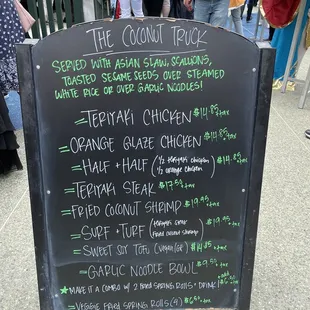 THE COCONUT TRUCK
SERVED WITH ASIAN SLAW, SCALLIONS,
TOASTED SESAME SEEDS OVER STEAMED
WHITE RICE OR OVER GARLIC NOODLES!
= TERIYAKI CHICKEN $14.85 +tax
= ORANGE GLAZE CHICKEN $14.85 +tax
= HALF + HALF (1/2 teriyaki chicken 1/2 orange chicken) $14.85 +tax
= TERIYAKI STEAK $17.59 +tax
= FRIED COCONUT SHRIMP $19.95 +tax
= SURF + TURF (teriyaki steak fried coconut shrimp) $19.95 +tax
= SWEET SOY TOFU (VEGAN/GF) $14.85 +tax
= GARLIC NOODLE BOWL $9.55 +tax
★ MAKE IT A COMBO W/ 2 FRIED SPRING ROLLS + DRINK
= VEGGIE FRIED SPRING ROLLS (4) +tax